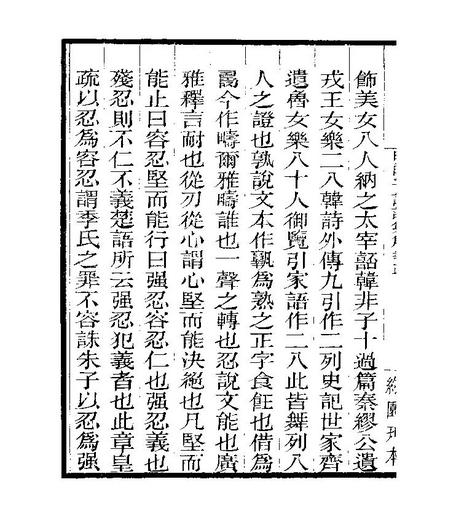 飾美女八人納之太宰嚭韓非子十過篇秦繆公遺
戎王女樂二八韓詩外傳九引作二列史記世家齊
遺魯女樂八十人御覽引家語作二八此皆舞列八
人之證也孰說文本作𦏧爲熟之正字食飪也借爲
𠷎今作疇爾雅疇誰也一聲之轉也忍說文能也廣
雅釋言耐也從刃從心謂心堅而能決絕也凡堅而
能止曰容忍堅而能行曰强忍容忍仁也强忍義也
殘忍則不仁不義楚語所云强忍犯義者也此章皇
疏以忍爲容忍謂季氏之罪不容誅朱子以忍爲强